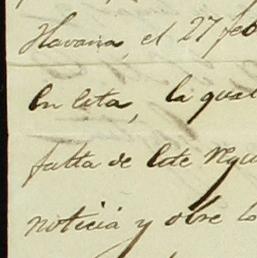 Havana, el 27 feb
En esta, la qual
falta de este regu
noticia y obre lo